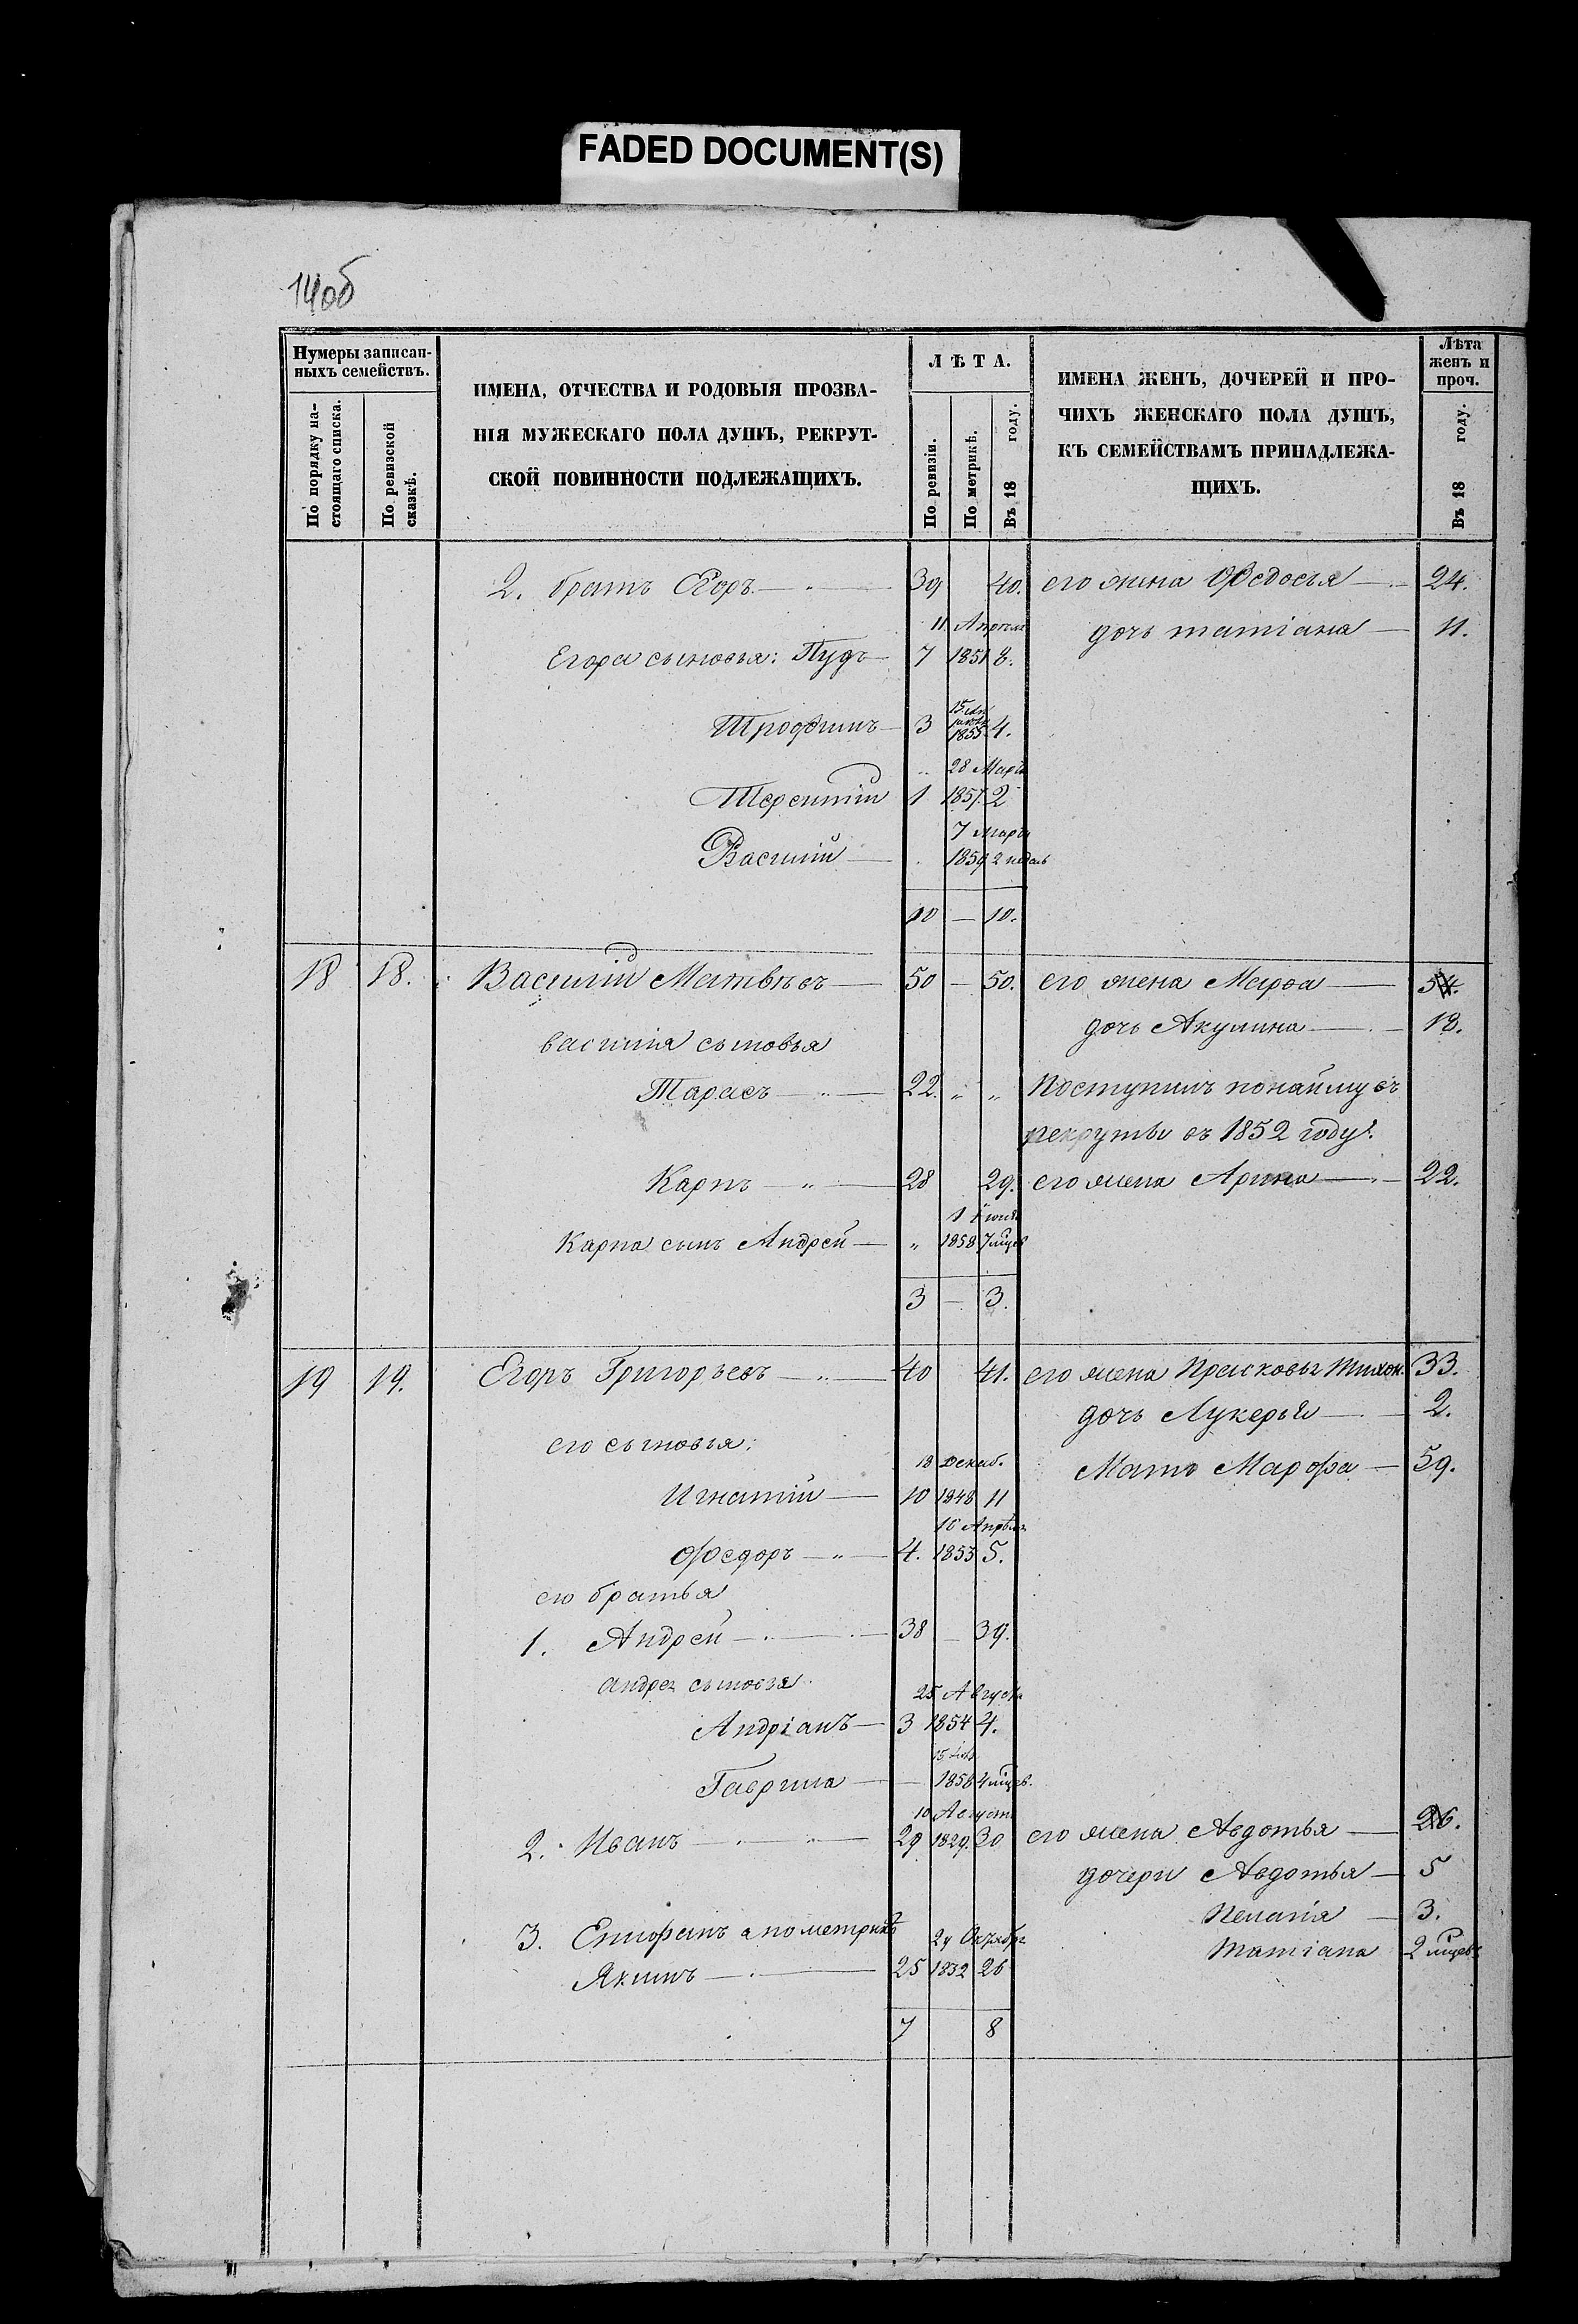 FADED DOCUMENT(S)
14об
Нумеры записан-
ныхъ семействъ.
По порядку на-
стоящаго списка.
По ревизской
сказкѣ.
ИМЕНА, ОТЧЕСТВА И РОДОВЫЯ ПРОЗВА-
НІЯ МУЖЕСКАГО ПОЛА ДУШЪ, РЕКРУТ-
СКОЙ ПОВИННОСТИ ПОДЛЕЖАЩИХЪ.
ЛѢТА.
По ревизіи.
По метрикѣ.
Въ 18 году.
ИМЕНА ЖЕНЪ, ДОЧЕРЕЙ И ПРО-
ЧИХЪ ЖЕНСКАГО ПОЛА ДУШЪ,
КЪ СЕМЕЙСТВАМЪ ПРИНАДЛЕЖА-
ЩИХЪ.
Лѣта
женъ и
проч.
Въ 18 году.
2. братъ Егоръ 39 40. его жена Федосья 24.
11 Апрѣля дочь татіана 11.
Егора сыновья: Пудъ 7 1851 8.
15
Трофимъ 3 1855 4.
28 Марта
Терентій 1 1857. 2
7 марта
Василій 1859 2 недель
10 — 10.
18 18. Василій Матвѣевъ 50 — 50. его жена Марфа
дочь Акулина 18.
василія сыновья
Тарасъ 22. „ „ Поступилъ понайму въ
рекруты въ 1852 году.
Карпъ 28 29. его жена Арина 22.
1 Іюня
Карпа сынъ Андрей „ 1858 7 мцев
3 — 3.
19 19. Егоръ Григорьевъ 40 41. его жена Прасковья Тихон. 33.
дочь Лукерья 2.
его сыновья:
18 Декаб. Мать Марфа 59.
Игнатій 10 1848 11
Апрѣля
Федоръ 4. 1853 5.
его братья
1. Андрей 38 — 39.
андрея сыновья
25 Августа
Андріанъ 3 1854 4.
15
Гаврила — 1858 4 мцев.
10 Августа
2. Иванъ 29 1829. 30 его жена Авдотья 26.
дочери Авдотья 5
Пелагія 3.
3. Епифанъ а по метрикѣ 24 Октября
татіана 2 мцевъ
Якимъ 25 1832 26
7 8